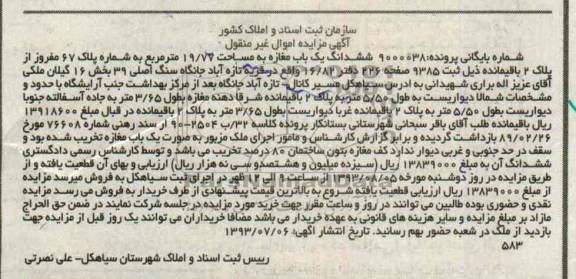 سازمان ثبت اسناد و املاک کشور
آگهی مزایده اموال غیر منقول
شماره بایگانی پرونده: 9000038 ششدانگ یک باب مغازه به مساحت 19/77 مترمربع به شماره پلاک 67 مفروز از
پلاک 2 باقیمانده ذیل ثبت 9385 صفحه 226 دفتر 16/82 واقع در قریه تازه آباد جانگاه سنگ اصلی 39 بخش 16 گیلان ملکی
آقای عزیز اله براری شهیدانی به ادرس سیاهکل مسیر کانال- تازه آباد جانگاه بعد از مرکز بهداشت جنب آرایشگاه با حدود و
مشخصات شمالا دیواریست به طول 5/50 متر به پلاک 2 باقیمانده شرقا دهنه مغازه بطول 3/65 متر به جاده آسفالته جنوبا
دیواریست بطول 5/50 متر به پلاک 2 باقیمانده غربا دیواریست بطول 3/65 متر به پلاک 2 باقیمانده در قبال مبلغ 139186000
ریال باقیمانده طلب آقای باقر سبحانی شهرستانی بستانکار پرونده کلاسه 9000032/ب از سند رهنی شماره 76608 مورخ
89/02/26 بازداشت گردیده و برابر گزارش کارشناس و مامور اجرای ملک مزبور به صورت نیمه مخروبه سقف مغازه تخریب شده بود و
سقف در حد جنوبی و غربی دیوار ندارد کف مغازه بتون ساختمان 80 درصد تخریب می باشد و توسط کارشناس رسمی دادگستری
ششدانگ آن به مبلغ 13839000 ریال (سیزده میلیون و هشتصد و سی نه هزار ریال) ارزیابی و بهای آن قطعیت یافته و از
طریق مزایده در روز دوشنبه مورخه 1393/08/05 از ساعت 9 الی 12 ظهر در اجرای ثبت سیاهکل به فروش میرسد مزایده
از مبلغ 13839000 ریال ارزیابی قطعیت یافته شروع به بالاترین قیمت پیشنهادی از طرف خریدار به فروش می رسد مزایده
نقدی و حضوری بوده طالبین می توانند در روز و ساعت مقرر جهت خرید مورد مزایده در جلسه شرکت نمایند در ضمن حق الحراج
مازاد بر مبلغ مزایده و سایر هزینه های قانونی به عهده خریدار می باشد مضافا خریداران می توانند یک روز قبل از مزایده جهت
بازدید از ملک در شعبه حضور بهم رسانید. تاریخ انتشار آگهی: 1393/07/06
583
رییس ثبت اسناد و املاک شهرستان سیاهکل- علی نصرتی